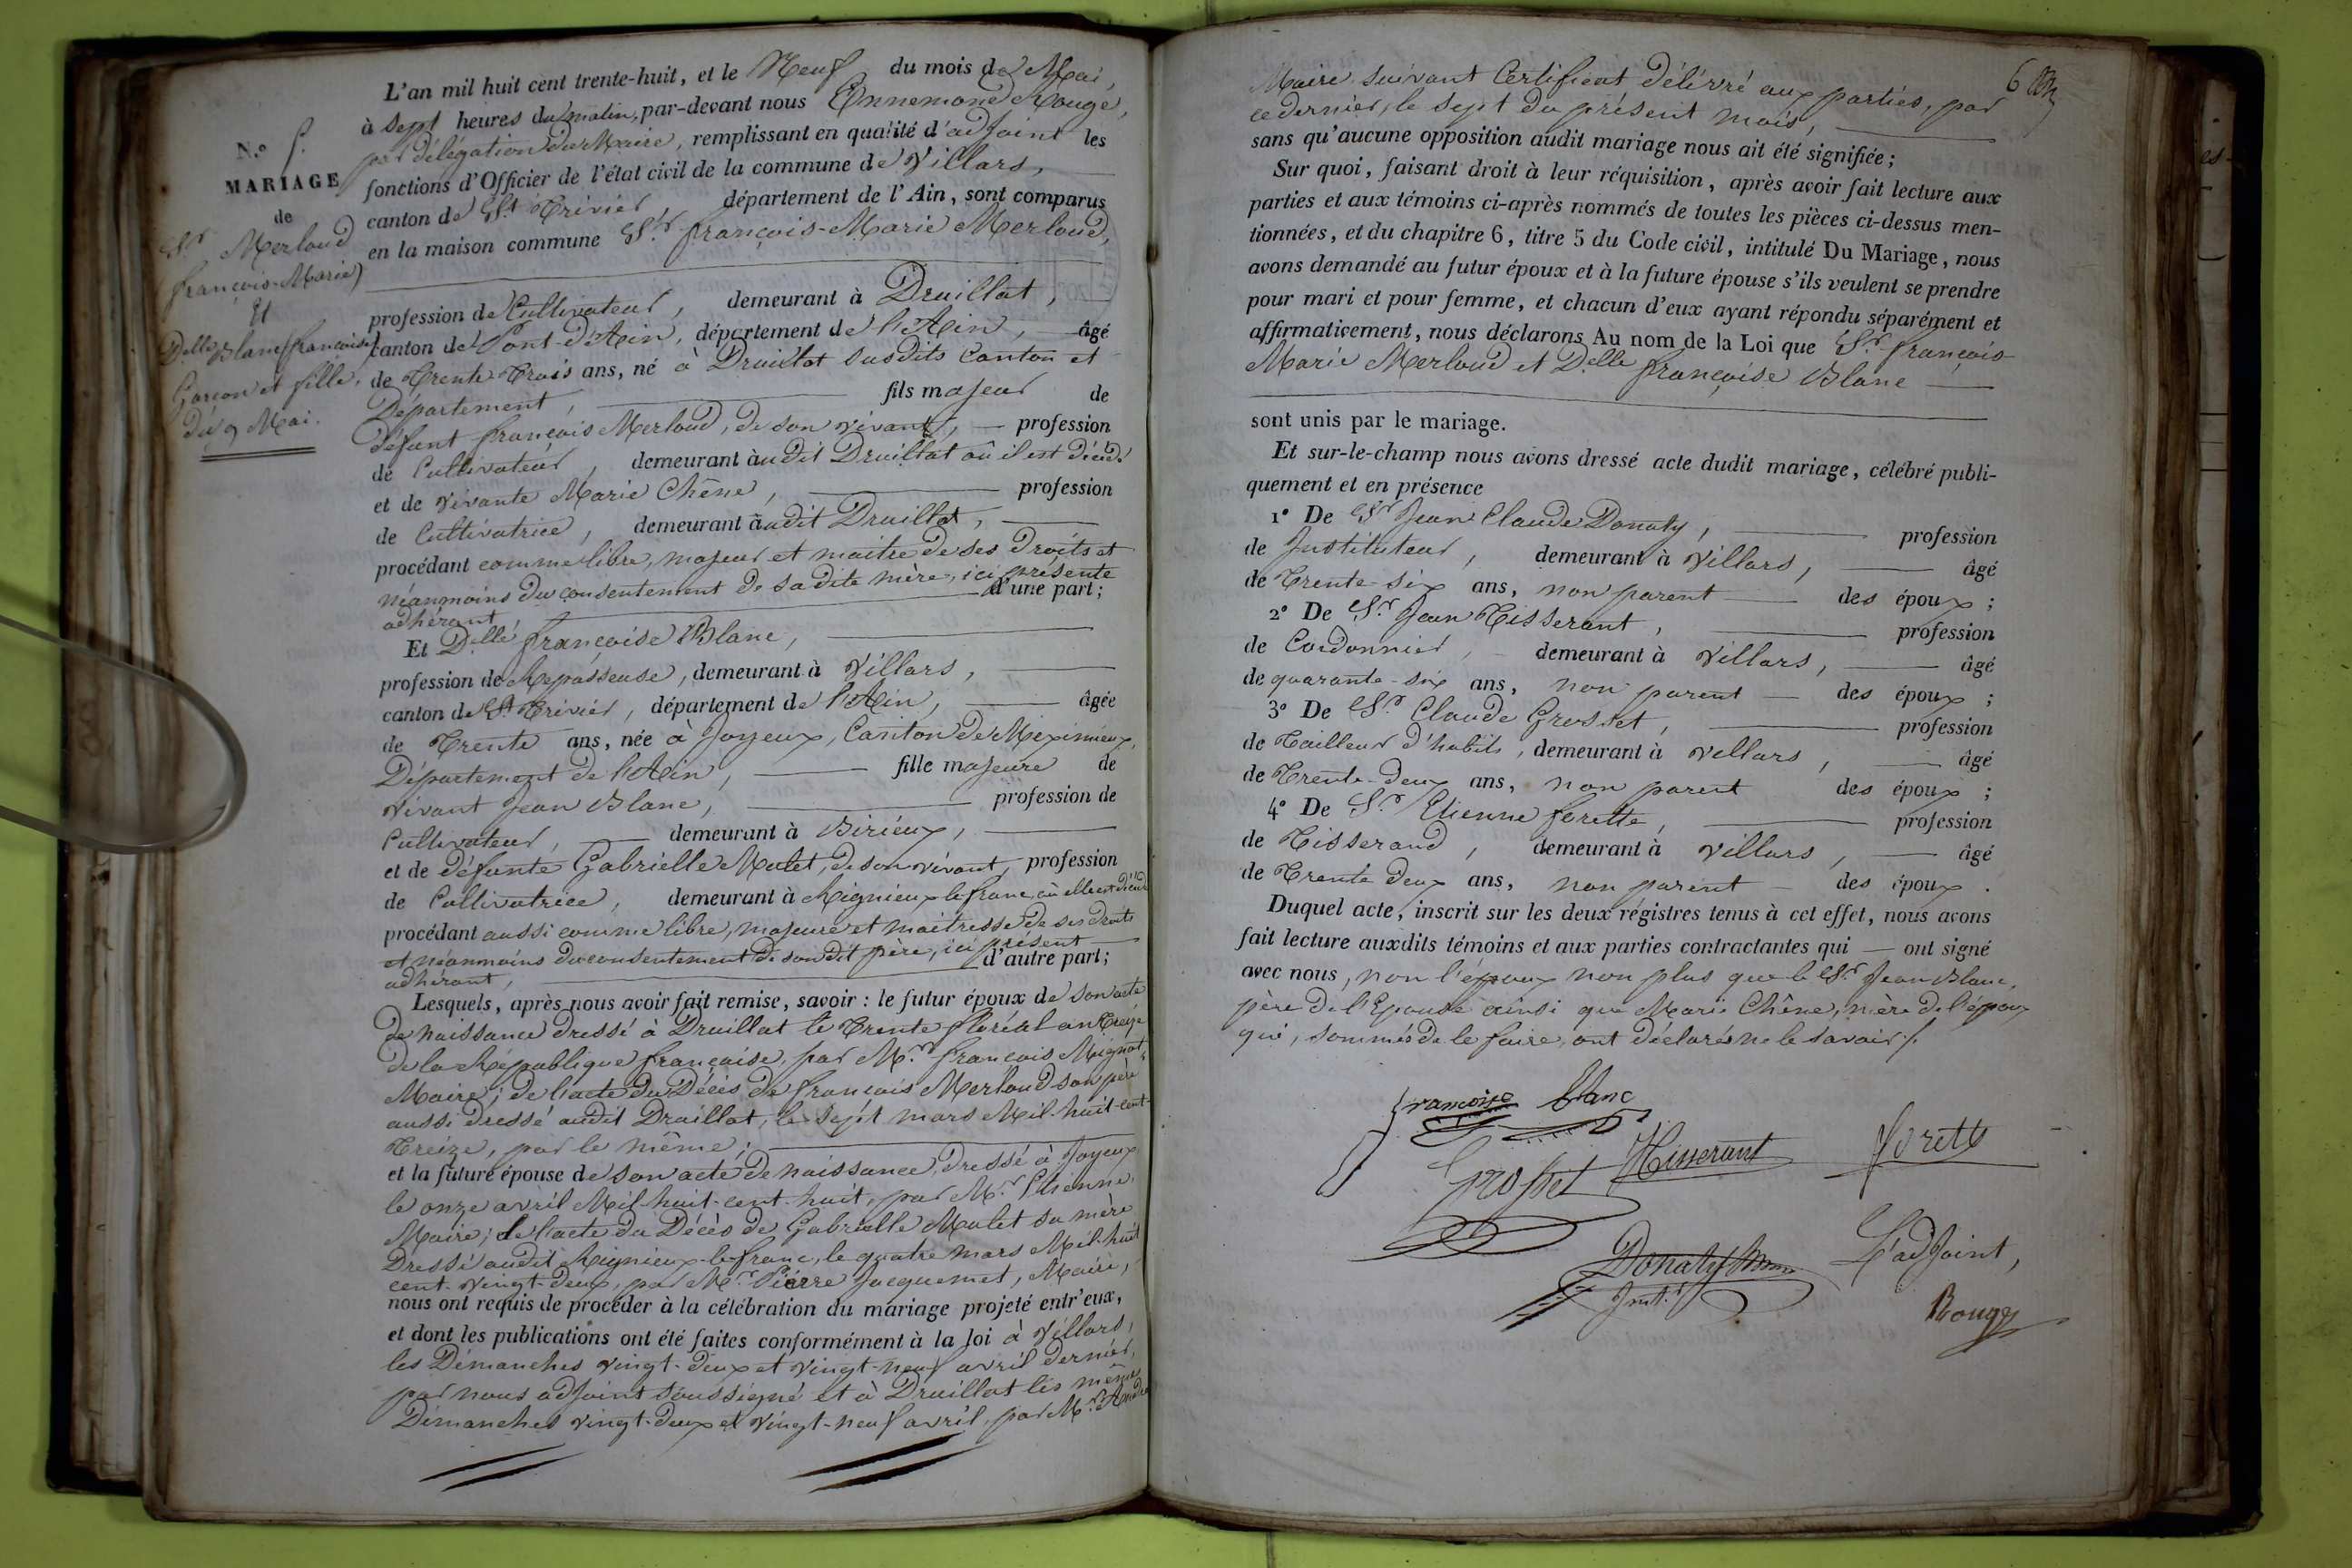 N.o 5.
MARIAGE
de
Sr. Merloud
françois-Marie
Et
Delle Blanc françoise
Garçon et fille.
du 9 Mai.
L'an mil huit cent trente-huit, et le Neuf du mois de Mai,
à Sept heures du matin, par-devant nous Ennemond Rougé,
par délégation du Maire, remplissant en qualité d'adjoint les
fonctions d'Officier de l'état civil de la commune de Villars,
canton de St. Trivier, département de l'Ain, sont comparus
en la maison commune Sr. françois-Marie Merloud,
profession de Cultivateur, demeurant à Druillat,
canton de Pont-d'Ain, département de l'Ain, âgé
de Trente Trois ans, né à Druillat susdits Canton et
Département, fils majeur de
défunt françois Merloud, de son vivant, profession
de Cultivateur, demeurant audit Druillat où il est décédé
et de vivante Marie Chêne, profession
de Cultivatrice, demeurant audit Druillat,
procédant comme libre, majeur et maitre de ses droits et
néanmoins du consentement de sadite mère, ici présente
adhérant, d'une part;
Et Delle françoise Blanc,
profession de Repasseuse, demeurant à Villars,
canton de St. Trivier, département de l'Ain, âgée
de Trente ans, née à Joyeux, Canton de Meximieux,
Département de l'Ain, fille majeure de
vivant Jean Blanc, profession de
Cultivateur, demeurant à Birieux,
et de défunte Gabrielle Mulet, de son vivant, profession
de Cultivatrice, demeurant à Rignieux-le-franc, où elle est décédée
procédant aussi comme libre, majeure et maitresse de ses droits
et néanmoins du consentement de son dit père, ici présent
adhérant, d'autre part;
Lesquels, après nous avoir fait remise, savoir : le futur époux de son acte
de naissance dressé à Druillat le Trente floréal an Treize
de la République française, par Mr. françois Mignot,
Maire; de l'acte du Décès de françois Merloud son père
aussi dressé audit Druillat, le sept mars Mil-huit-cent-
Treize, par le même;
et la future épouse de son acte de naissance, dressé à Joyeux
le onze avril Mil-huit-cent-huit, par Mr. Etienne,
Maire; de l'acte du Décès de Gabrielle Mulet sa mère
Dressé audit Rignieux-le-franc, le quatre mars Mil-huit
cent-vingt-deux, par Mr. Pierre Jacquemet, Maire,
nous ont requis de procéder à la célébration du mariage projeté entr'eux,
et dont les publications ont été faites conformément à la loi à Villars,
les Dimanches vingt-deux et vingt-neuf avril dernier,
par nous adjoint soussigné et à Druillat les mêmes
Dimanches vingt-deux et vingt-neuf avril, par Mr.
6
Maire, suivant Certificat délivré aux parties, par
ce dernier, le sept du présent mois,
sans qu'aucune opposition audit mariage nous ait été signifiée;
Sur quoi, faisant droit à leur réquisition, après avoir fait lecture aux
parties et aux témoins ci-après nommés de toutes les pièces ci-dessus men-
tionnées, et du chapitre 6, titre 5 du Code civil, intitulé Du Mariage, nous
avons demandé au futur époux et à la future épouse s'ils veulent se prendre
pour mari et pour femme, et chacun d'eux ayant répondu séparément et
affirmativement, nous déclarons Au nom de la Loi que Sr. françois-
Marie Merloud et Delle françoise Blanc
sont unis par le mariage.
Et sur-le-champ nous avons dressé acte dudit mariage, célébré publi-
quement et en présence
1º De Sr Jean Claude Donaty, profession
de Instituteur, demeurant à Villars, âgé
de Trente-six ans, non parent des époux;
2º De Sr. Jean Tisserant, profession
de Cordonnier, demeurant à Villars, âgé
de quarante-six ans, non parent des époux;
3º De Sr. Claude Grosset, profession
de Tailleur d'habits, demeurant à Villars, âgé
de Trente-deux ans, non parent des époux;
4º De Sr. Etienne forette, profession
de Tisserand, demeurant à Villars, âgé
de Trente deux ans, non parent des époux.
Duquel acte, inscrit sur les deux régistres tenus à cet effet, nous avons
fait lecture auxdits témoins et aux parties contractantes qui ont signé
avec nous, non l'époux non plus que le Sr. Jean Blanc,
père de l'Epouse ainsi que Marie Chêne, mère de l'époux
qui, sommés de le faire, ont déclaré ne le savoir /.
francoise blanc
Grosset Tisserant forette
Donaty
Inst.r
L'adjoint,
Rougé